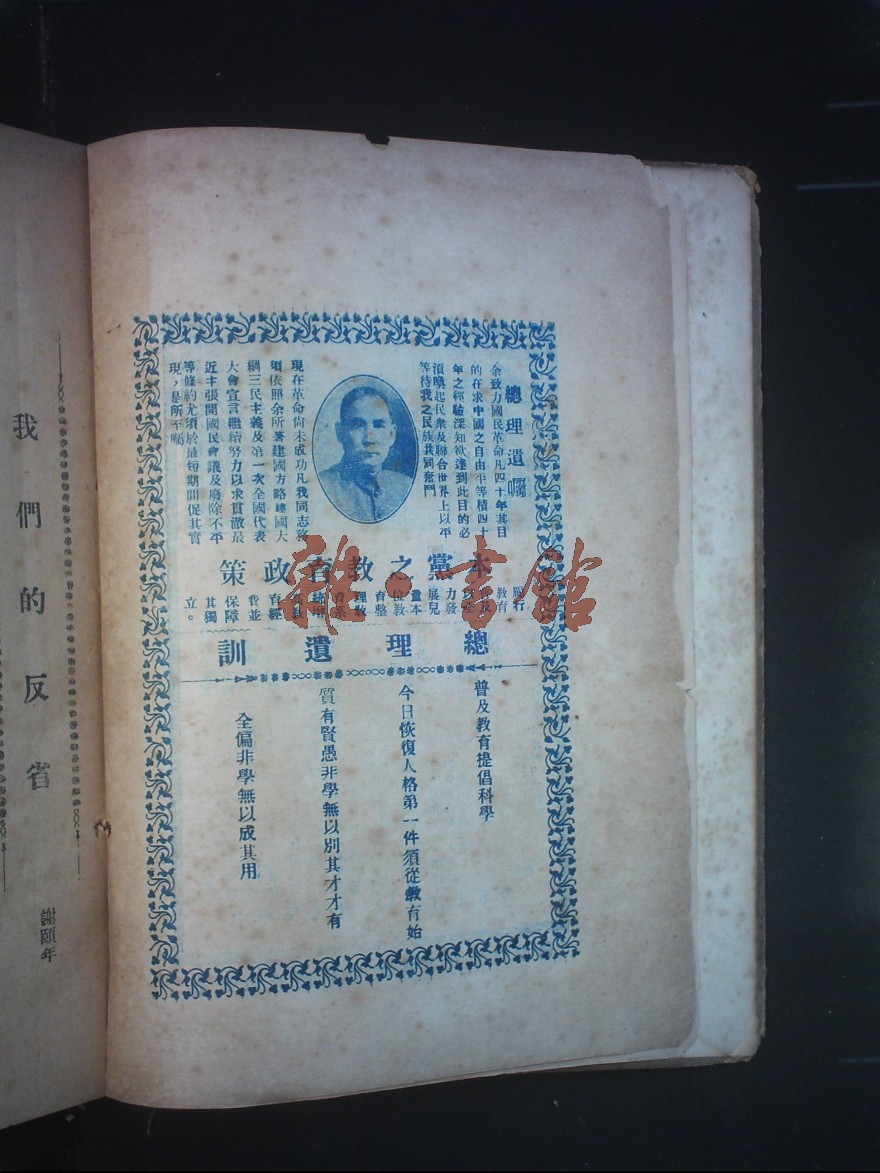 總理遺囑
余致力國民革命凡四十年其目
的在求中國之自由平等積四十
年之經驗深知欲達到此目的必
須喚起民衆及聯合世界上以平
等待我之民族共同奮鬥
現在革命尚未成功凡我同志務
須依照余所著建國方略建國大
綱三民主義及第一次全國代表
大會宣言繼續努力以求貫澈最
近主張開國民會議及廢除不平
等條約尤須於最短期間促其實
現，是所至囑
本黨之教育政策
行
教育
力發
展兒
童本
位教
育整
理教
育系
統增
高教
育經
費並
保障
其獨
立。
總理遺訓
普及教育提倡科學
今日恢復人格第一件須從教育始
質有賢愚非學無以別其才才有
全偏非學無以成其用
我們的反省
謝頤年
雜·書館